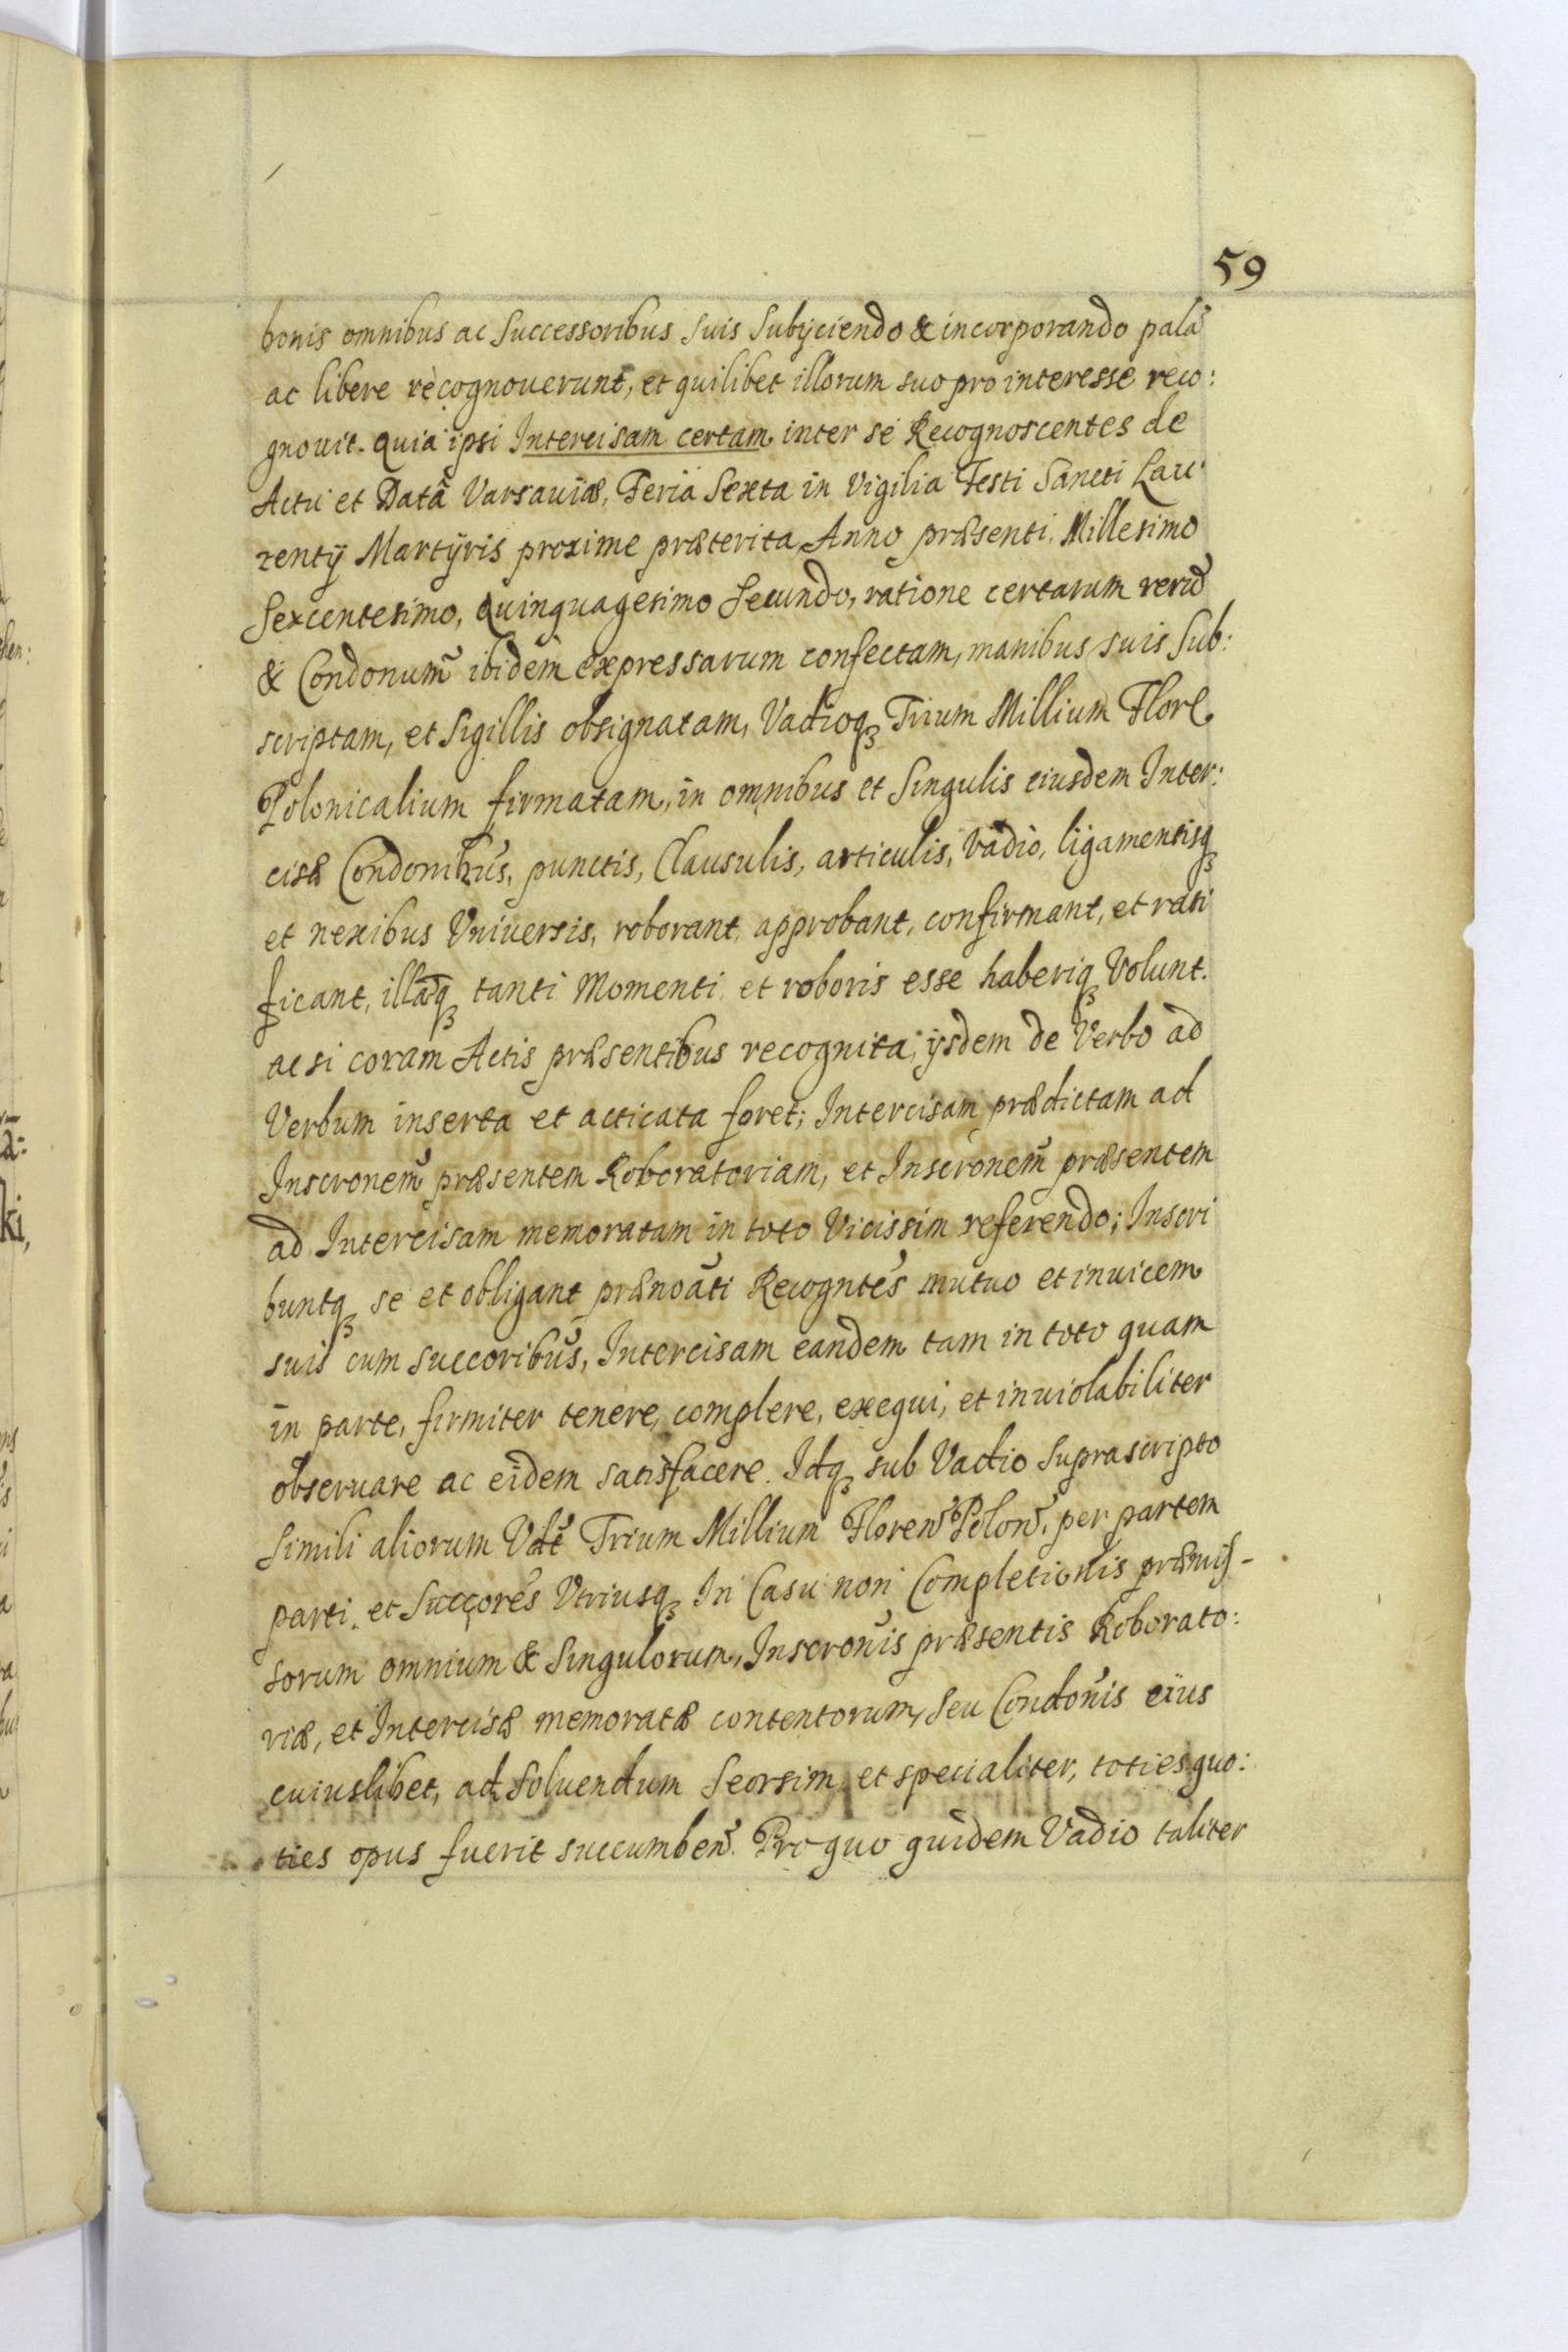 59
bonis omnibus ac Successoribus suis Subijciendo & incorporando palã
ac libere recognouerunt, et quilibet illorum suo pro interesse reco:
gnouit. Quia ipsi Intercisam certam inter se Recognoscentes de
Actu et Datã Varsauiæ, Feria Sexta in Vigilia Festi Sancti Lau
rentij Martÿris proxime præterita, Anno præsenti, Millesimo
Sexcentesimo, Quinquagesimo Secundo, ratione certarum rerũ
& Condonum̃ ibidem expressarum confectam, manibus suis Sub:
scriptam, et Sigillis obsignatam, Vadioqꝫ Trium Millium Flore
Polonicalium firmatam, in omnibus et Singulis eiusdem Inter:
cisæ Condonibus̃, punctis, Clausulis, articulis, Vadio, ligamentisqꝫ
et nexibus Vniuersis, roborant, approbant, confirmant, et rati
ficant, illãqꝫ tanti Momenti et roboris esse haberiqꝫ Volunt.
acsi coram Actis præsentibus recognita, ijsdem de Verbo ad
Verbum inserta et acticata foret; Intercisam prædictam ad
Inscronem̃ præsentem Roboratoriam, et Inscronem̃ præsentem
ad Intercisam memoratam in toto Vicissim referendo; Inscri
buntqꝫ se et obligant prænoãti Recogntẽs mutuo et inuicem
suis cum succoribus̃, Intercisam eandem tam in toto quam
in parte, firmiter tenere, complere, exequi, et inuiolabiliter
obseruare ac eidem satisfacere. Idqꝫ sub Vadio Suprascripto
Simili aliorum Vdt̃ Trium Millium Floren̄ Polon̄, per partem
parti, et Succorẽs Vtriusqꝫ In Casu non Completionis præmis-
sorum omnium & Singulorum, Inscronis̃ præsentis Roborato:
riæ, et Intercisæ memoratæ contentorum, seu Condonis̃ eius
cuiuslibet, ad soluendum Seorsim et specialiter, toties quo:
ties opus fuerit succumben̄. Pro quo quidem Vadio taliter